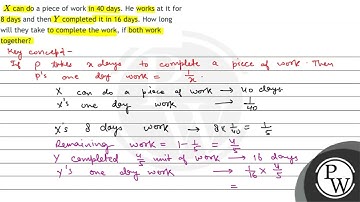 X can do a piece of work in 40 days. He works at it for
8 days and then Y completed it in 16 days. How long
will they take to complete the work, if both work
together?
Key concept:-
If P takes x days to complete a piece of work. Then
P's one day work = 1/x.
X can do a piece of work → 40 days
X's one day work → 1/40
X's 8 days work → 8x1/40 = 1/5
Remaining work = 1-1/5 = 4/5
Y completed 4/5 unit of work → 16 days
Y's one day work → 1/16 x 4/5
=
PW